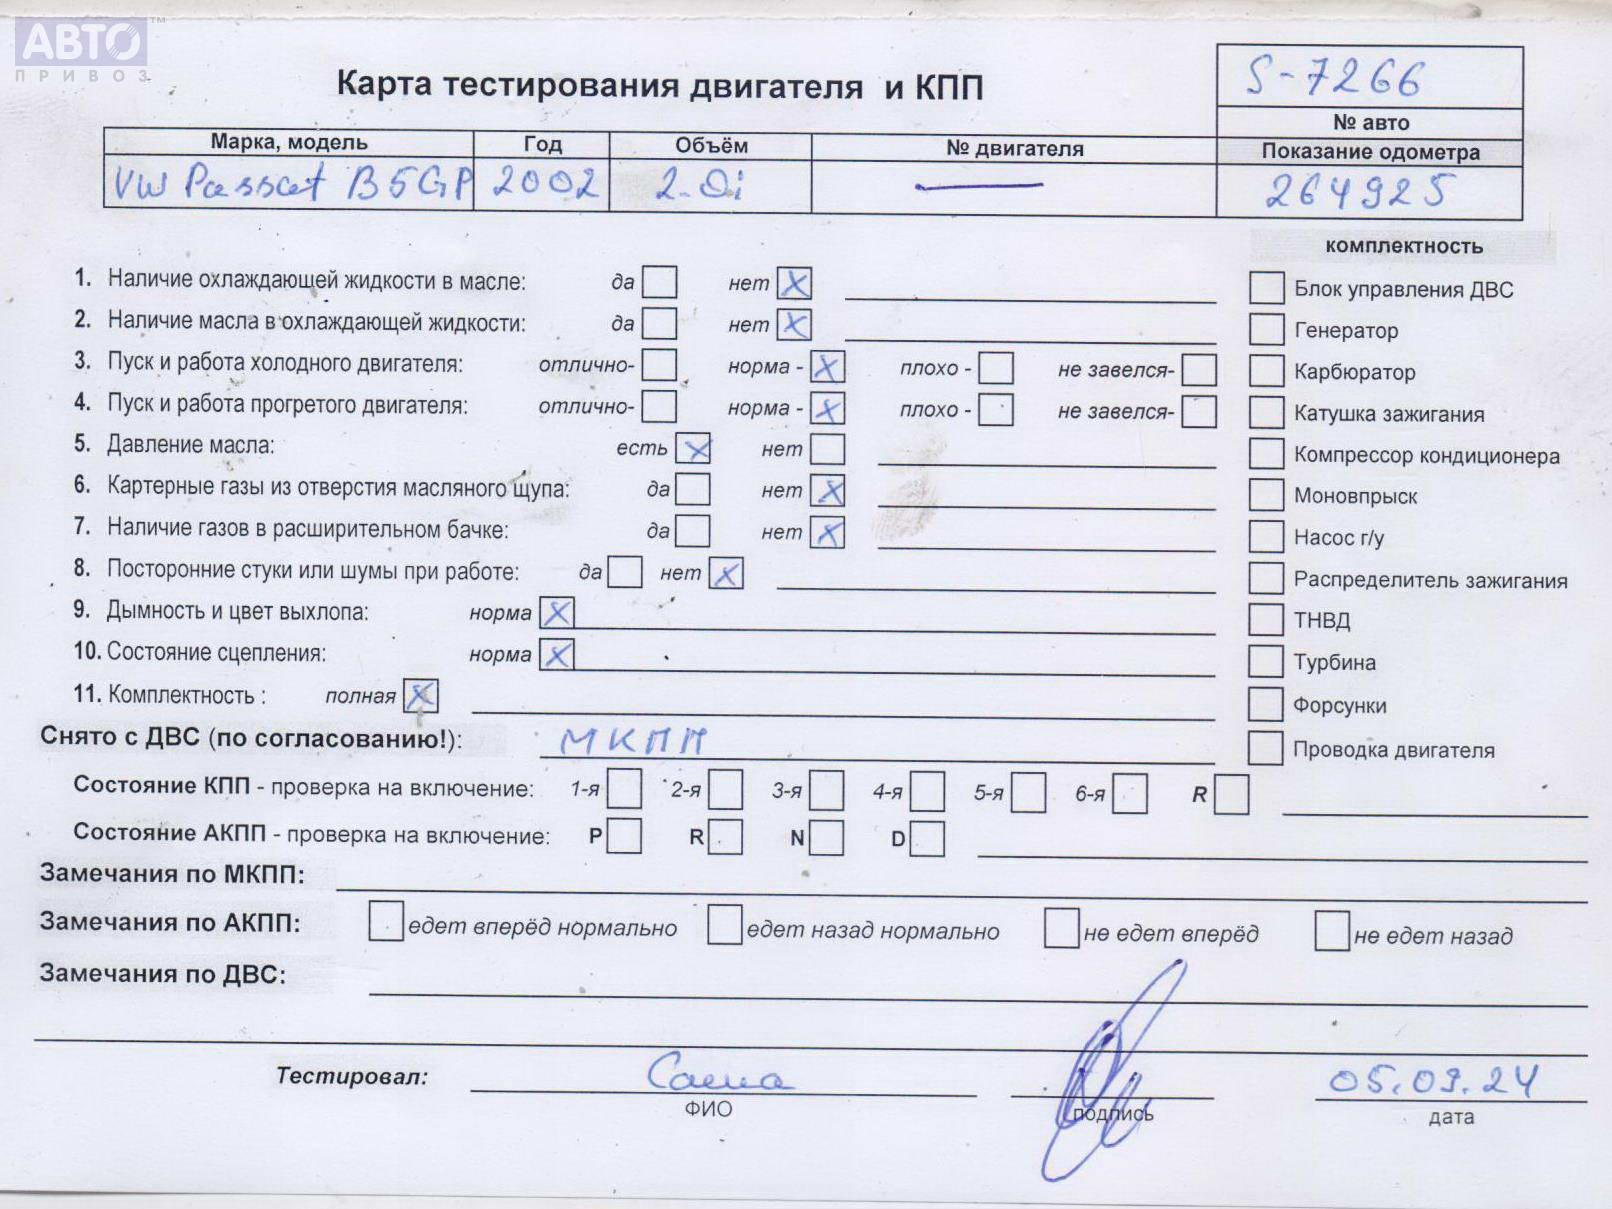 АВТО™
ПРИВОЗ
Карта тестирования двигателя и КПП
S-7266
№ авто
Марка, модель Год Объём № двигателя Показание одометра
VW Passat B5GP 2002 2.0i — 264925
комплектность
1. Наличие охлаждающей жидкости в масле: да нет X
Блок управления ДВС
2. Наличие масла в охлаждающей жидкости: да нет X
Генератор
3. Пуск и работа холодного двигателя: отлично- норма - X плохо - не завелся-
Карбюратор
4. Пуск и работа прогретого двигателя: отлично- норма - X плохо - не завелся-
Катушка зажигания
5. Давление масла: есть X нет
Компрессор кондиционера
6. Картерные газы из отверстия масляного щупа: да нет X
Моновпрыск
7. Наличие газов в расширительном бачке: да нет X
Насос г/у
8. Посторонние стуки или шумы при работе: да нет X
Распределитель зажигания
9. Дымность и цвет выхлопа: норма X
ТНВД
10. Состояние сцепления: норма X
Турбина
11. Комплектность : полная X
Форсунки
Снято с ДВС (по согласованию!): МКПП
Проводка двигателя
Состояние КПП - проверка на включение: 1-я 2-я 3-я 4-я 5-я 6-я R
Состояние АКПП - проверка на включение: P R N D
Замечания по МКПП:
Замечания по АКПП: едет вперёд нормально едет назад нормально не едет вперёд не едет назад
Замечания по ДВС:
Тестировал: Саша 05.09.24
ФИО подпись дата